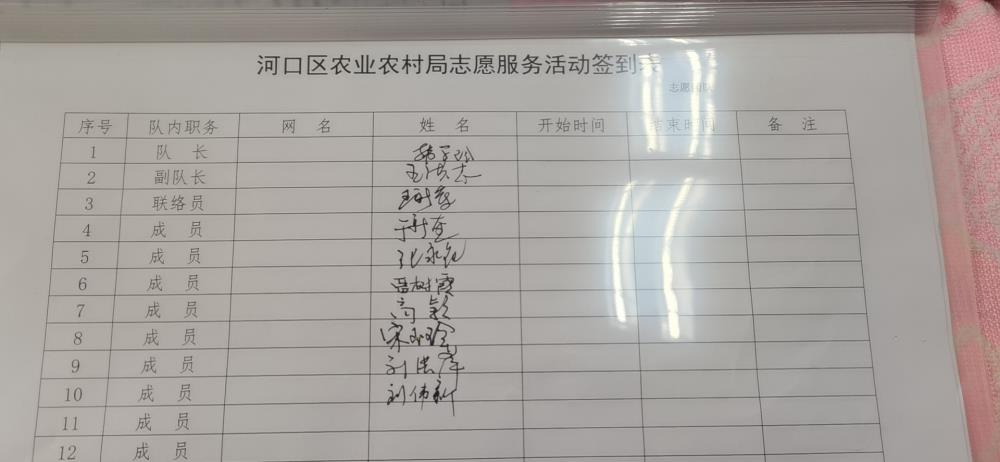 河口区农业农村局志愿服务活动签到表
志愿团队
序号 队内职务 网 名 姓 名 开始时间 结束时间 备 注
1 队 长
2 副队长
3 联络员
4 成 员
5 成 员 张永
6 成 员 树霞
7 成 员 高颖
8 成 员 宋
9 成 员 刘洪
10 成 员 刘伟新
11 成 员
12 成 员